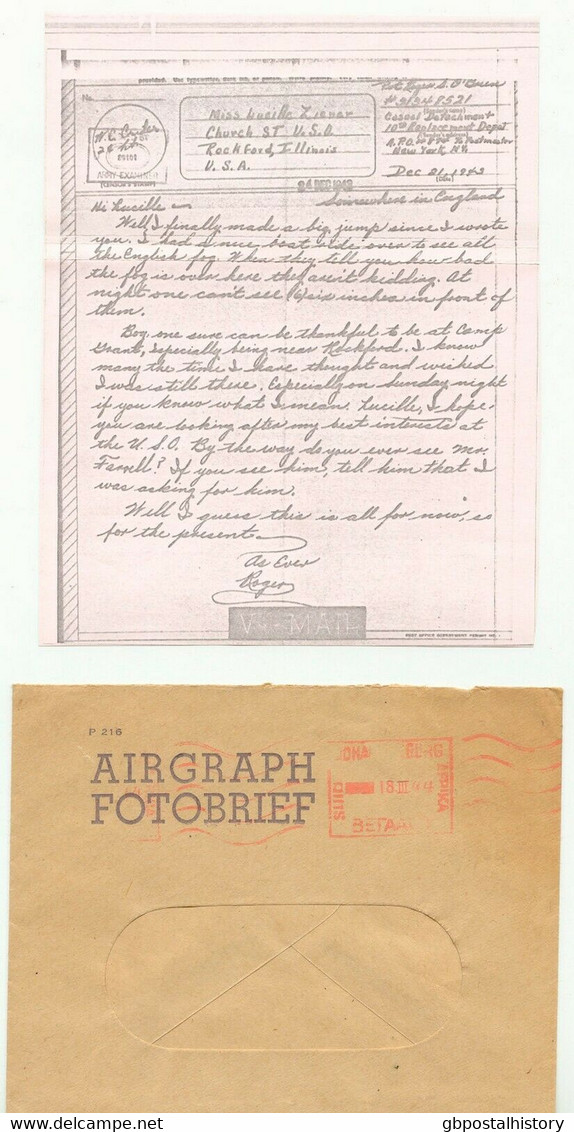 No.
Pvt Roger S. O'Brien
Miss Lucille Ziener
Church ST U.S.O
Rockford, Illinois
U.S.A.
Casual Detachment
10th Replacement Depot
A.P.O. 874 % Postmaster
New York N.Y.
Dec 21, 1943
ARMY EXAMINER
24 DEC 1943
Somewhere in England
Hi Lucille -
Well, I finally made a big jump since I wrote
you. I had a nice boat ride over to see all
the English fog. When they tell you how bad
the fog is over here they aren't kidding. At
night one can't see (6) six inches in front of
them.
Boy, one sure can be thankful to be at Camp
Grant, especially being near Rockford. I know
many the time I have thought and wished
I was still there. Especially on Sunday night
if you know what I mean. Lucille, I hope
you are looking after my best interests at
the U.S.O. By the way do you ever see Mr.
Farrell? If you see him, tell him that I
was asking for him.
Well I guess this is all for now, so
for the present -
As Ever
Roger
V-MAIL
P 216
AIRGRAPH
FOTOBRIEF
18 III 44
BETAA
gbpostalhistory